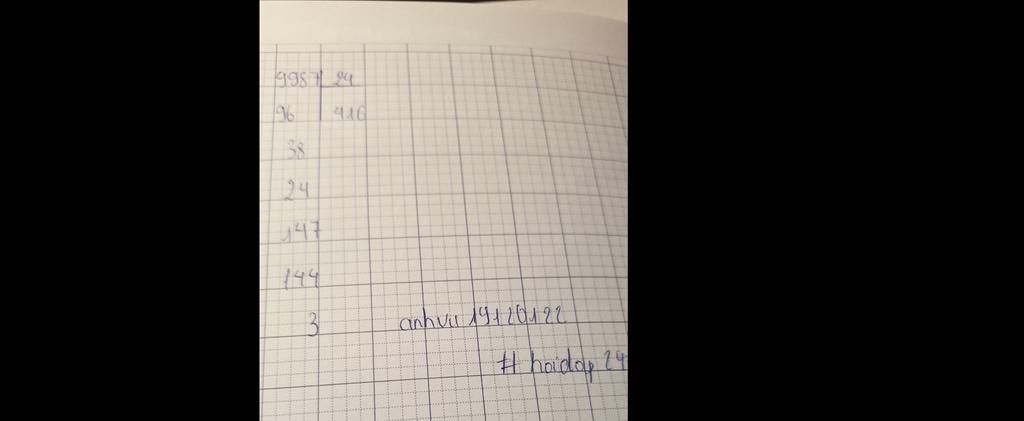 9987 24
96 416
38
24
147
144
3
anhvu19120122
# hoidap 24